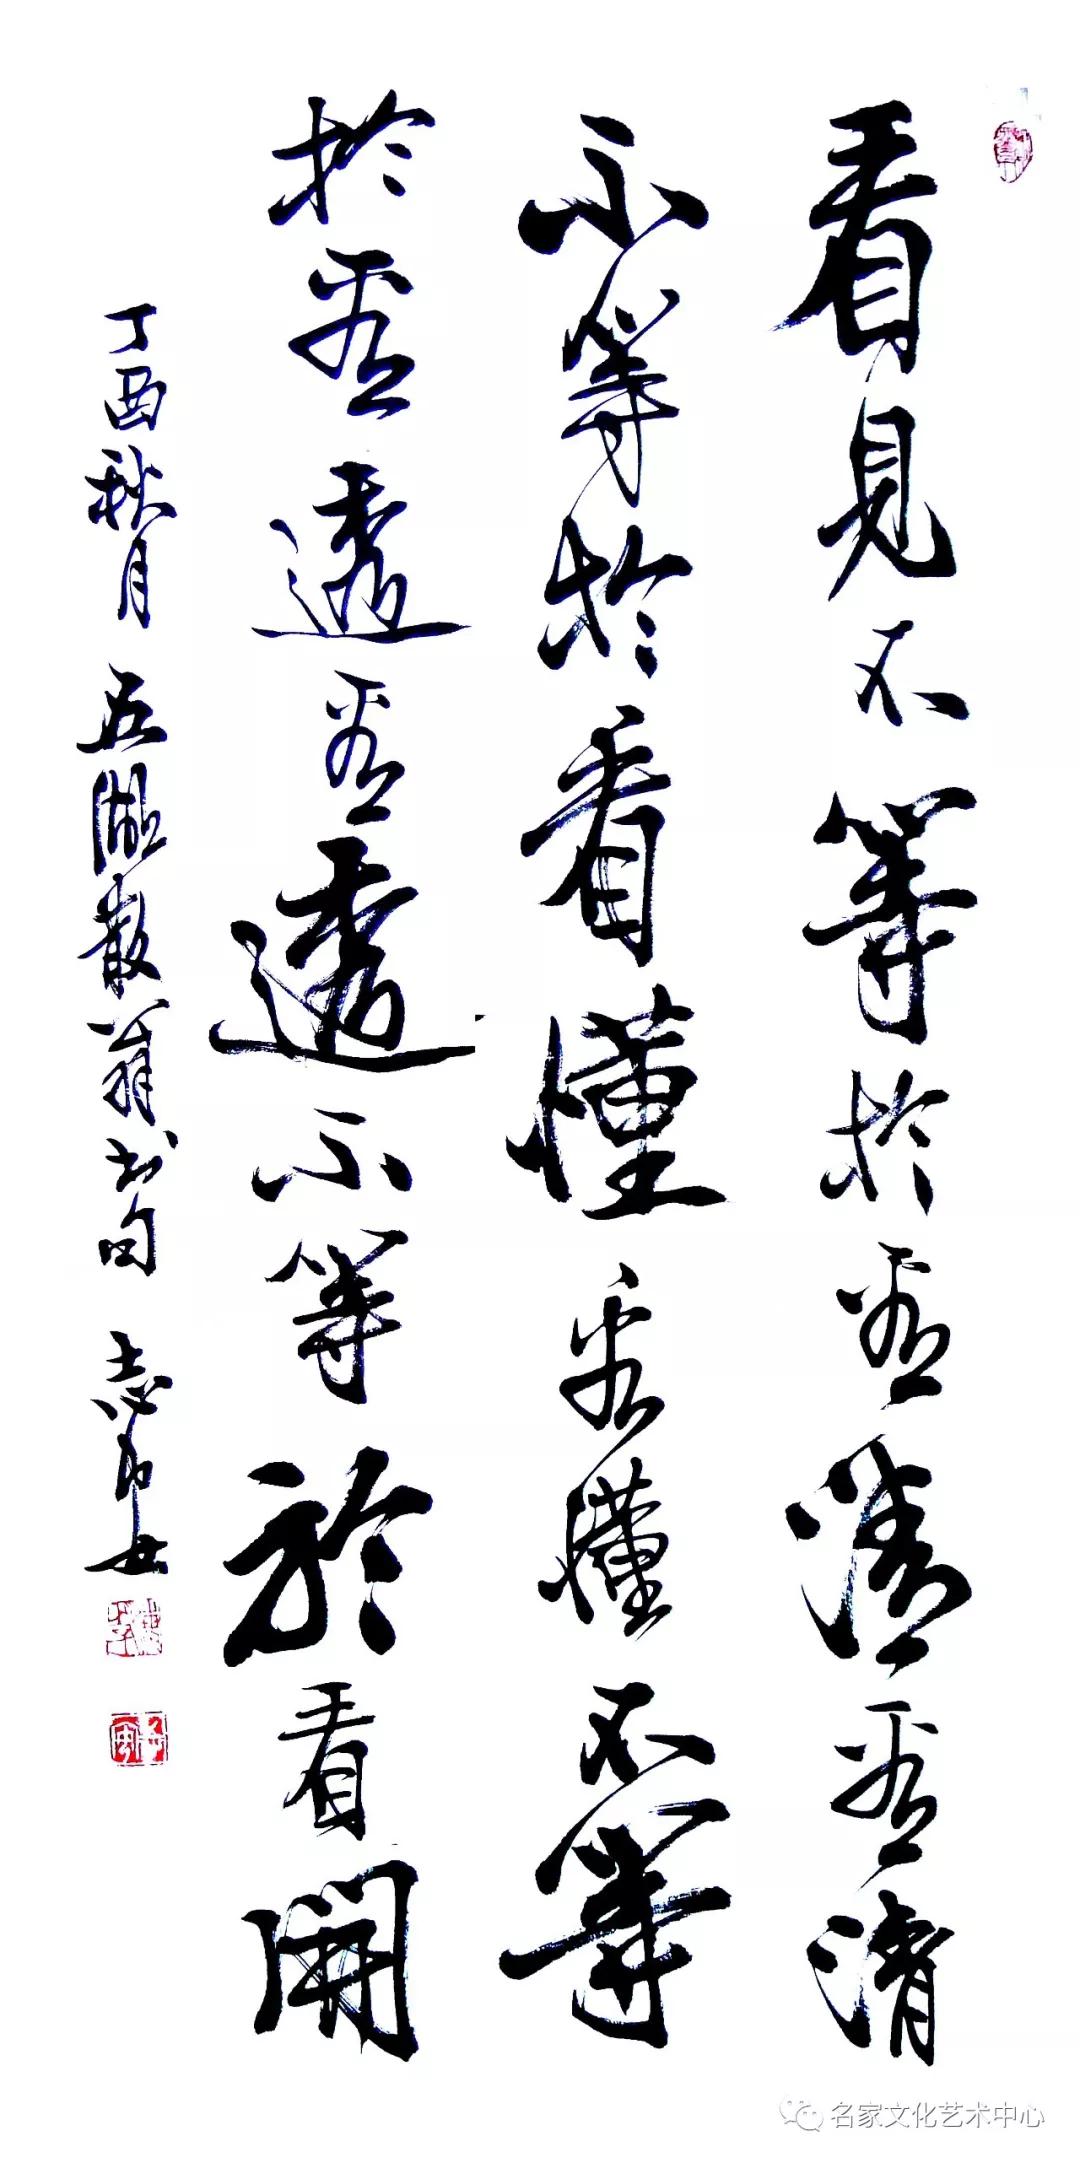 看見不等於看清看清
不等於看懂看懂不等
於看透看透不等於看開
丁酉秋月 五湖散翁書句 志
名家文化艺术中心